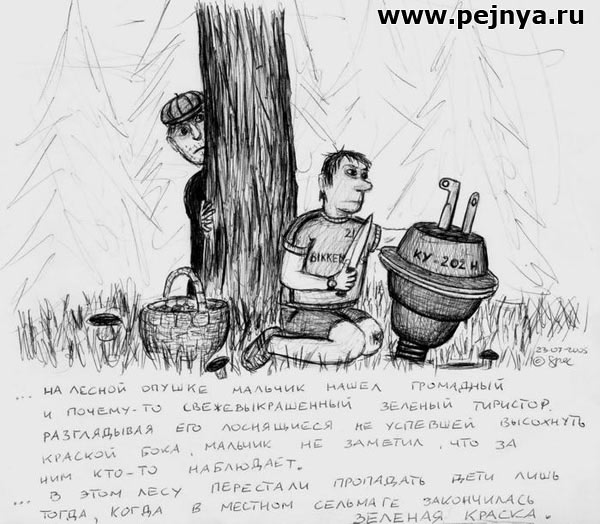 www.pejnya.ru
21
BIKKEL
КУ-202Н
23-07-2005
©
... НА ЛЕСНОЙ ОПУШКЕ МАЛЬЧИК НАШЕЛ ГРОМАДНЫЙ
И ПОЧЕМУ-ТО СВЕЖЕВЫКРАШЕННЫЙ ЗЕЛЕНЫЙ ТИРИСТОР.
РАЗГЛЯДЫВАЯ ЕГО ЛОСНЯЩИЕСЯ НЕ УСПЕВШЕЙ ВЫСОХНУТЬ
КРАСКОЙ БОКА, МАЛЬЧИК НЕ ЗАМЕТИЛ, ЧТО ЗА
НИМ КТО-ТО НАБЛЮДАЕТ.
... В ЭТОМ ЛЕСУ ПЕРЕСТАЛИ ПРОПАДАТЬ ДЕТИ ЛИШЬ
ТОГДА, КОГДА В МЕСТНОМ СЕЛЬМАГЕ ЗАКОНЧИЛАСЬ
ЗЕЛЕНАЯ КРАСКА.